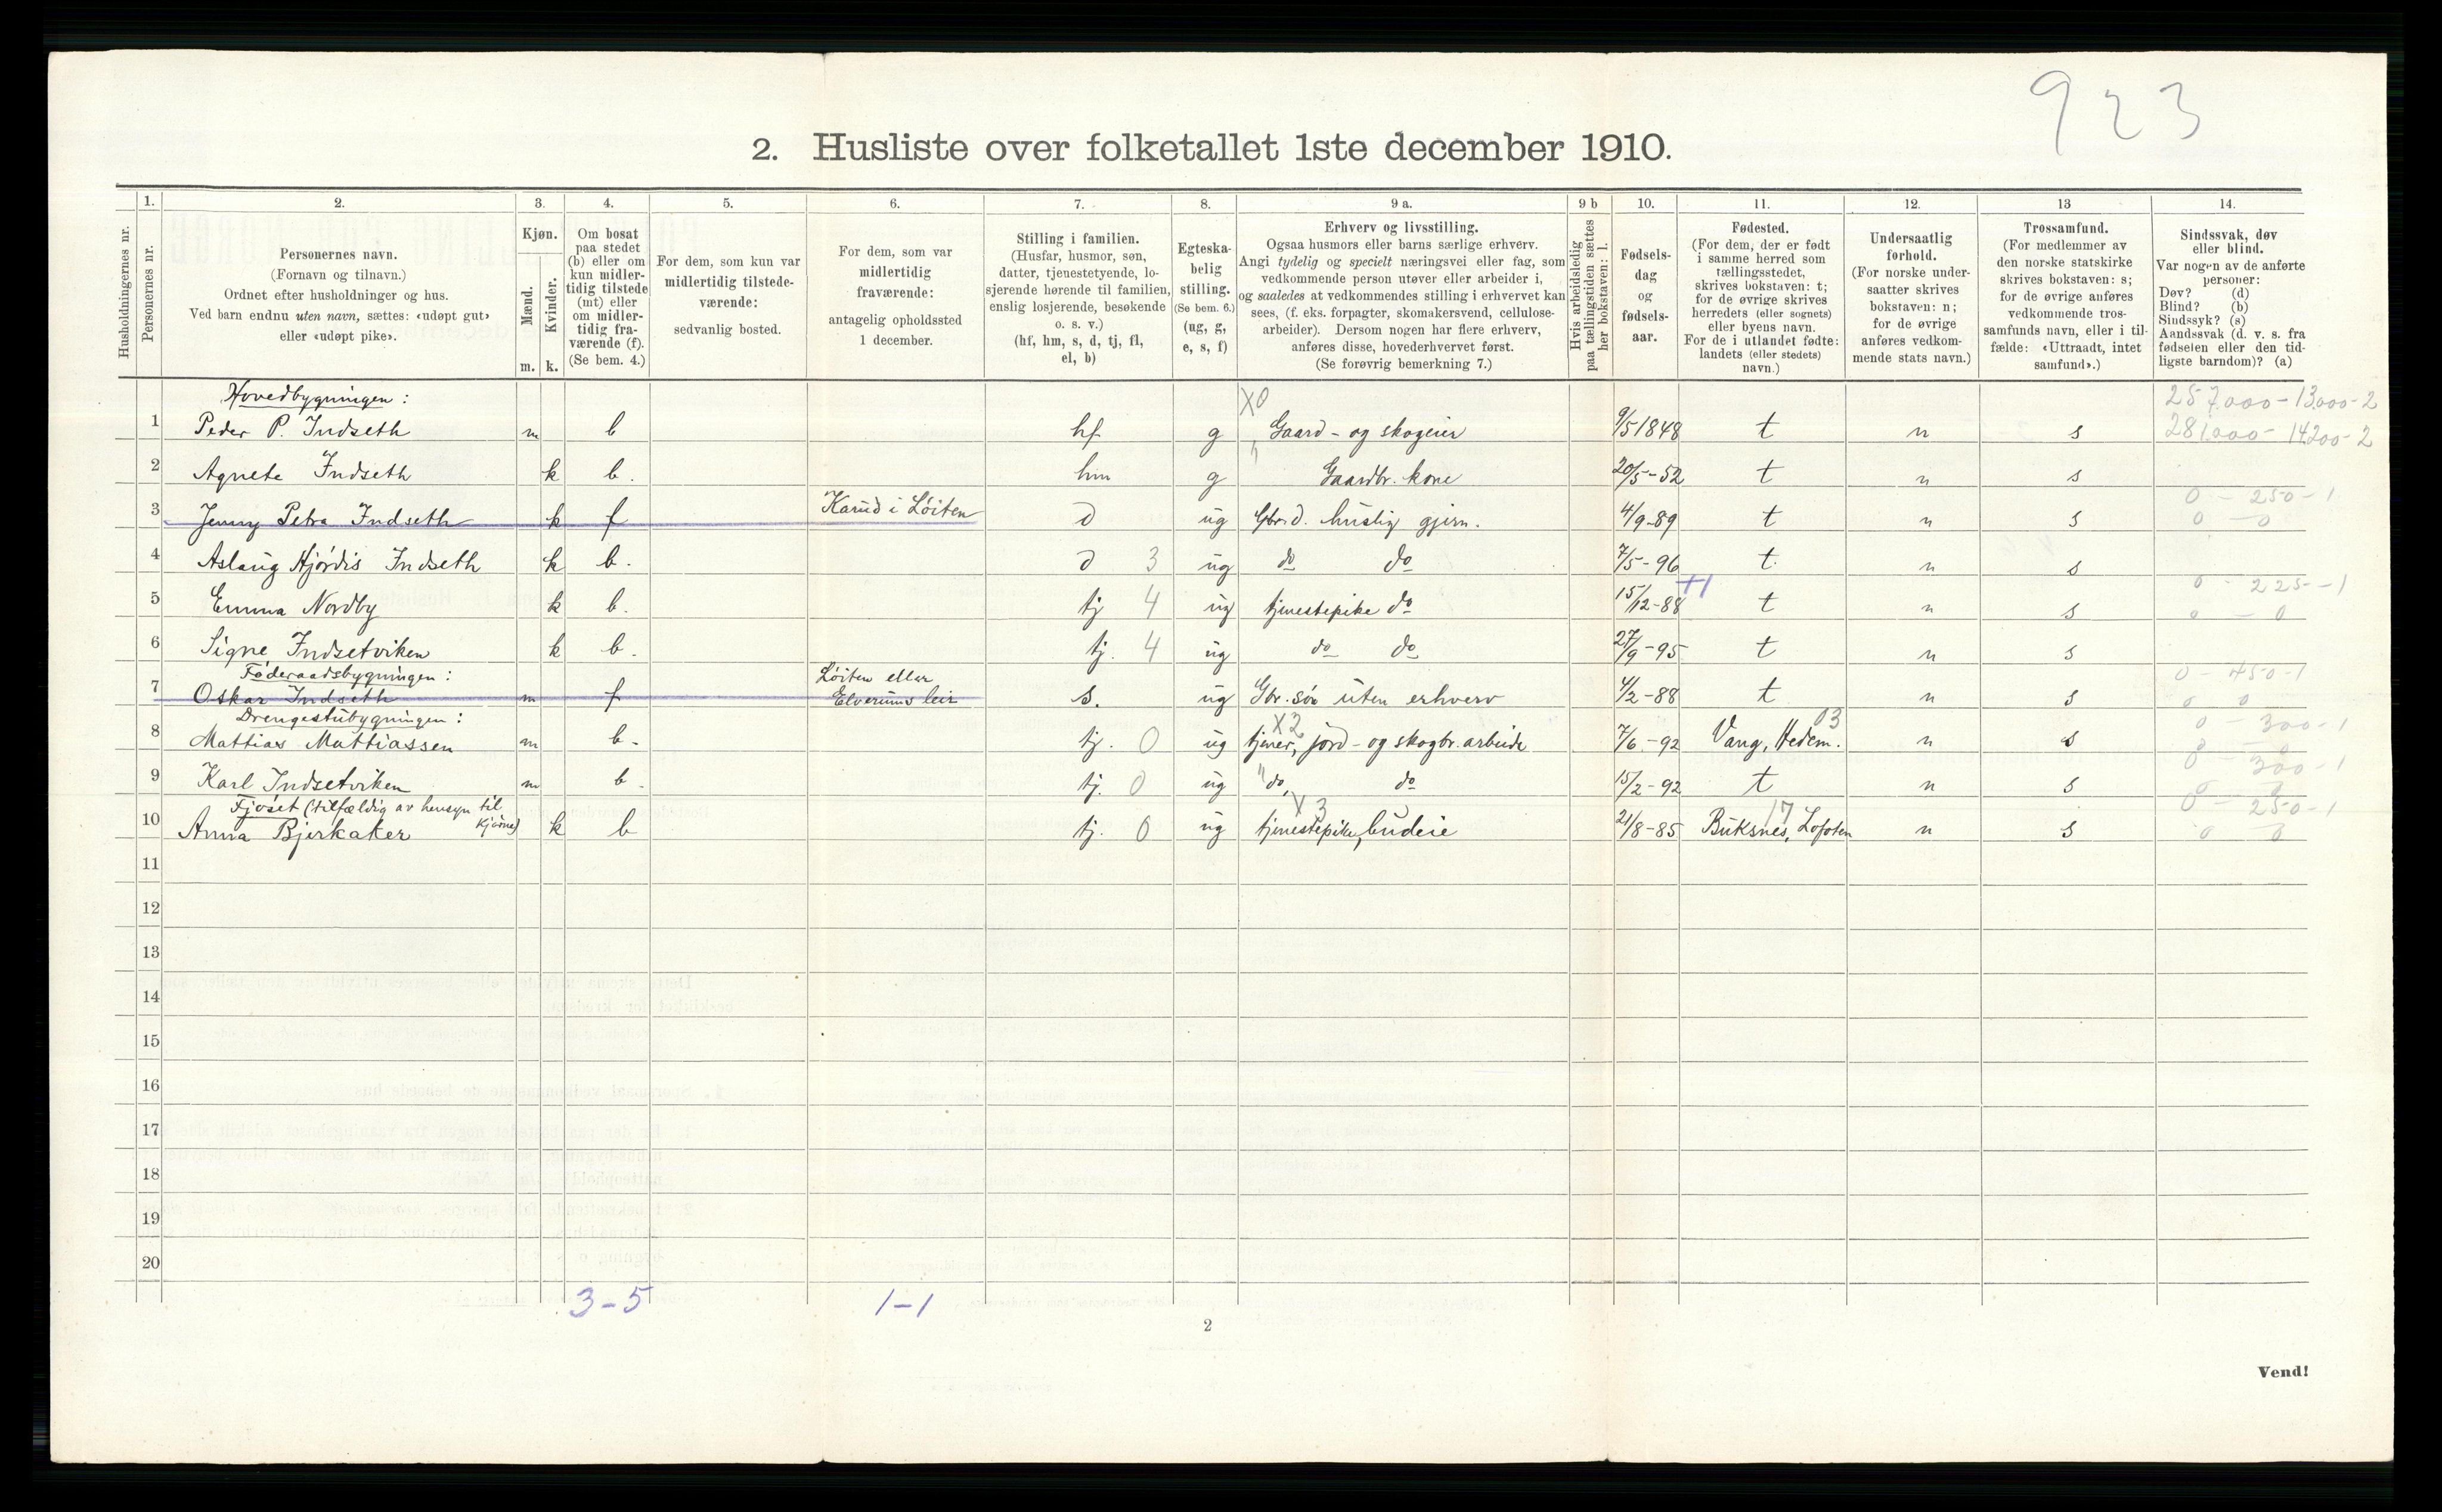 923
2. Husliste over folketallet 1ste december 1910.
Husholdningernes nr.
1.
Personernes nr.
2.
Personernes navn.
(Fornavn og tilnavn.)
Ordnet efter husholdninger og hus.
Ved barn endnu uten navn, sættes: «udøpt gut»
eller «udøpt pike».
3.
Kjøn.
Mænd.
Kvinder.
m. k.
4.
Om bosat
paa stedet
(b) eller om
kun midler-
tidig tilstede
(mt) eller
om midler-
tidig fra-
værende (f).
(Se bem. 4.)
5.
For dem, som kun var
midlertidig tilstede-
værende:
sedvanlig bosted.
6.
For dem, som var
midlertidig
fraværende:
antagelig opholdssted
1 december.
7.
Stilling i familien.
(Husfar, husmor, søn,
datter, tjenestetyende, lo-
sjerende hørende til familien,
enslig losjerende, besøkende
o. s. v.)
(hf, hm, s, d, tj, fl,
el, b)
8.
Egteska-
belig
stilling.
(Se bem. 6.)
(ug, g,
e, s, f)
9 a.
Erhverv og livsstilling.
Ogsaa husmors eller barns særlige erhverv.
Angi tydelig og specielt næringsvei eller fag, som
vedkommende person utøver eller arbeider i,
og saaledes at vedkommendes stilling i erhvervet kan
sees, (f. eks. forpagter, skomakersvend, cellulose-
arbeider). Dersom nogen har flere erhverv,
anføres disse, hovederhvervet først.
(Se forøvrig bemerkning 7.)
9 b
Hvis arbeidsledig
paa tællingstiden sættes
her bokstaven: l.
10.
Fødsels-
dag
og
fødsels-
aar.
11.
Fødested.
(For dem, der er født
i samme herred som
tællingsstedet,
skrives bokstaven: t;
for de øvrige skrives
herredets (eller sognets)
eller byens navn.
For de i utlandet fødte:
landets (eller stedets)
navn.)
12.
Undersaatlig
forhold.
(For norske under-
saatter skrives
bokstaven: n;
for de øvrige
anføres vedkom-
mende stats navn.)
13
Trossamfund.
(For medlemmer av
den norske statskirke
skrives bokstaven: s;
for de øvrige anføres
vedkommende tros-
samfunds navn, eller i til-
fælde: «Uttraadt, intet
samfund».)
14.
Sindssvak, døv
eller blind.
Var nogen av de anførte
personer:
Døv? (d)
Blind? (b)
Sindssyk? (s)
Aandssvak (d. v. s. fra
fødselen eller den tid-
ligste barndom)? (a)
Hovedbygningen: X0 257.000 - 13.000 - 2
1 Peder P. Indseth m b hf g Gaard- og skogeier 9/5 1848 t n s 281.000 - 14200 - 2
2 Agnete Indseth k b. hm g Gaardbr. kone 20/5-52 t n s
0 - 250 - 1
3 Jenny Petra Indseth k f Karud i Løiten d ug Gbr.d. huslig gjern. 4/9-89 t n s 0 - 0
4 Aslaug Hjørdis Indseth k b. d 3 ug do do 7/5-96 t. n s
+1 0 - 225 - 1
5 Emma Nordby k b. tj 4 ug tjenestepike do 15/12-88 t n s 0 - 0
6 Signe Indsetviken k b. tj. 4 ug do do 27/9-95 t n s
Føderaadsbygningen: Løiten eller 0 - 450 - 1
7 Oskar Indseth m f Elverums leir s. ug Gbr. søn uten erhverv 4/2-88 t n s 0 0
Drengestubygningen: X2 03 0 - 300 - 1
8 Mattias Mattiassen m b. tj. 0 ug tjener, jord- og skogbr. arbeide 7/6-92 Vang, Hedem. n s 0 0
0 - 300 - 1
9 Karl Indsetviken m b. tj. 0 ug " do, do 15/2-92 t n s 0 0
Fjøset (tilfældig av hensyn til kjørne) X3 17 0 - 250 - 1
10 Anna Bjerkaker k b tj. 0 ug tjenestepike, budeie 21/8-85 Buksnes, Lofoten n s 0 0
11
12
13
14
15
16
17
18
19
20
3-5 1-1
2
Vend!